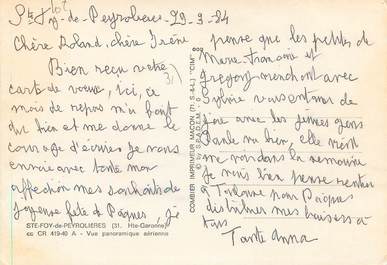 Ste Foy-de-Peyrolières 29-3-84
Chère Roland, chère Irène
Bien reçu votre
carte de vœux, ici, ce
mois de repos m'a fait
du bien et me donne le
courage d'écrire je vous
envoie avec toute mon
affection mes souhaits de
joyeuse fête de Pâques, je
STE-FOY-de-PEYROLIERES (31. Hte-Garonne)
es CR 419-40 A - Vue panoramique aérienne
COMBIER IMPRIMEUR MACON (71. S.-&-L.) "CIM"
pense que les petites de
Marie-Françoise et
Gregory marchent avec
Sylvie vous entourés de
joie avec les jeunes gens
Paule va bien, elle vient
me voir dans la semaine
je vais bien pense rentrer
à Toulouse pour Pâques
distribuer mes baisers à
tous
Tante Anna